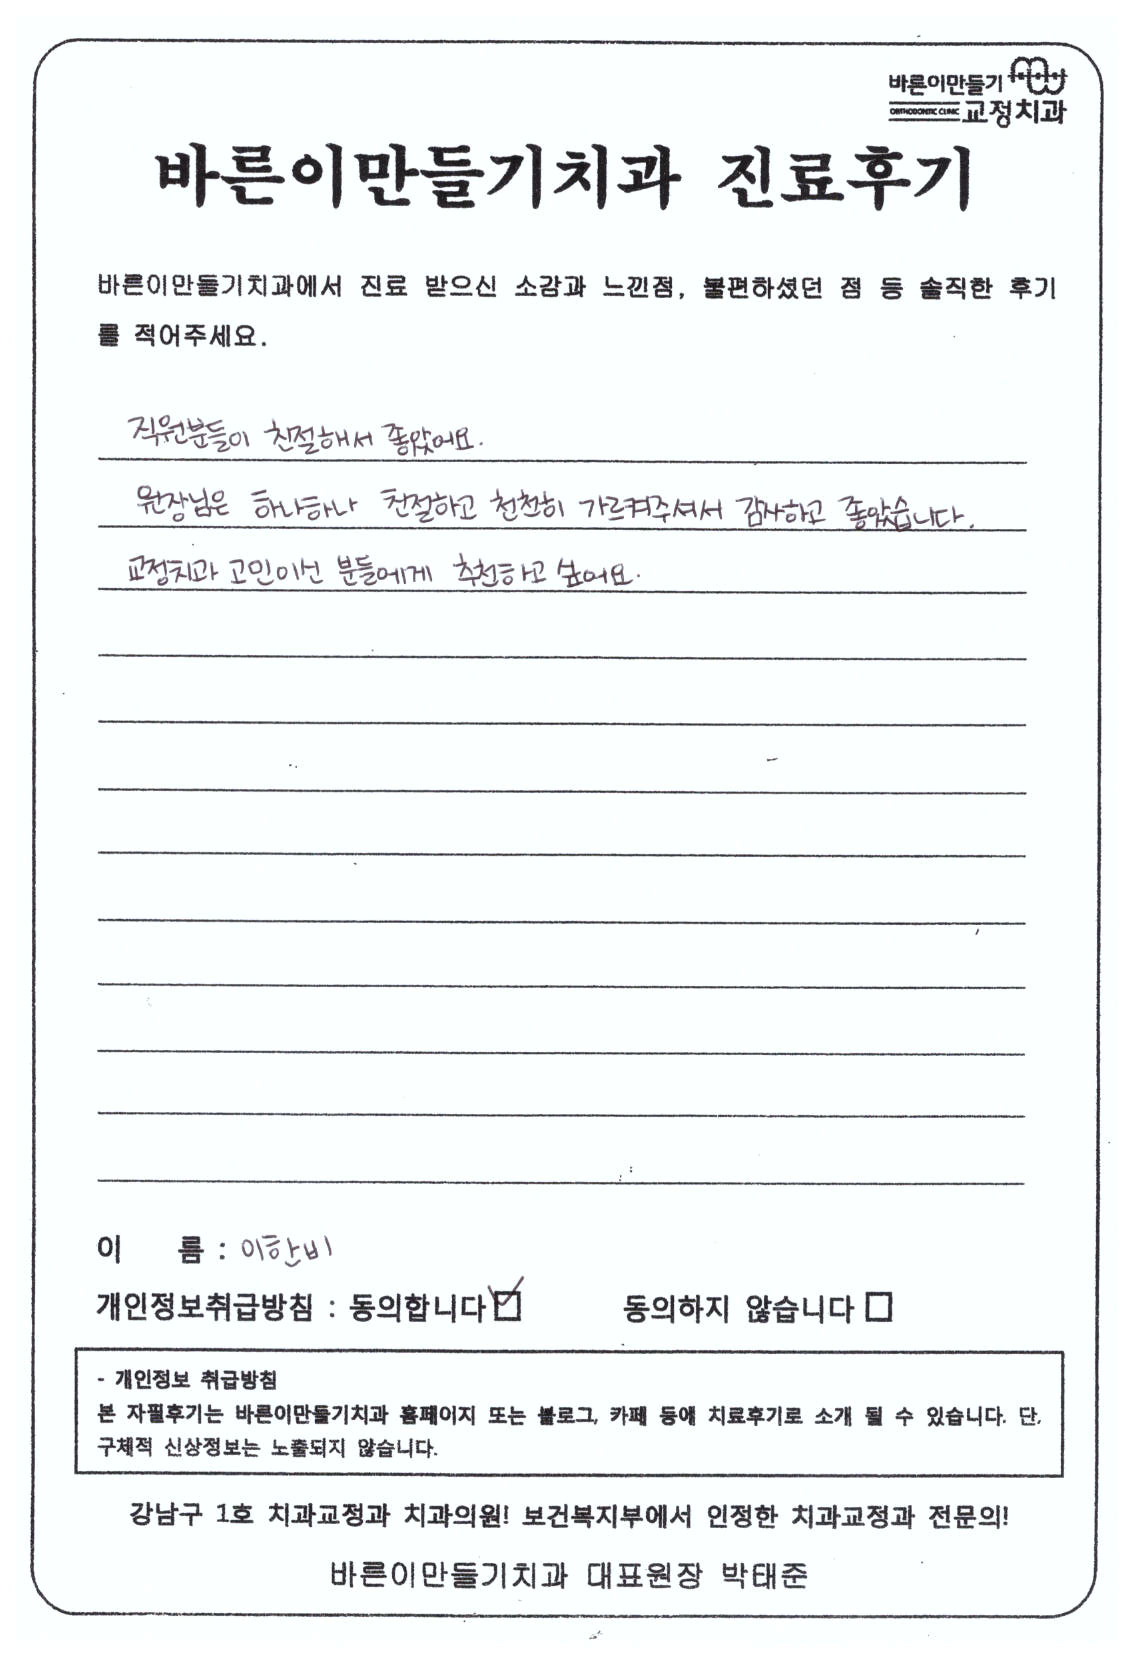 바른이만들기
ORTHODONTIC CLINIC 교정치과
바른이만들기치과 진료후기
바른이만들기치과에서 진료 받으신 소감과 느낀점, 불편하셨던 점 등 솔직한 후기
를 적어주세요.
직원분들이 친절해서 좋았어요.
원장님은 하나하나 친절하고 천천히 가르켜주셔서 감사하고 좋았습니다.
교정치과 고민이신 분들에게 추천하고 싶어요.
이 름 : 이한비
개인정보취급방침 : 동의합니다 동의하지 않습니다
- 개인정보 취급방침
본 자필후기는 바른이만들기치과 홈페이지 또는 블로그, 카페 등에 치료후기로 소개 될 수 있습니다. 단,
구체적 신상정보는 노출되지 않습니다.
강남구 1호 치과교정과 치과의원! 보건복지부에서 인정한 치과교정과 전문의!
바른이만들기치과 대표원장 박태준